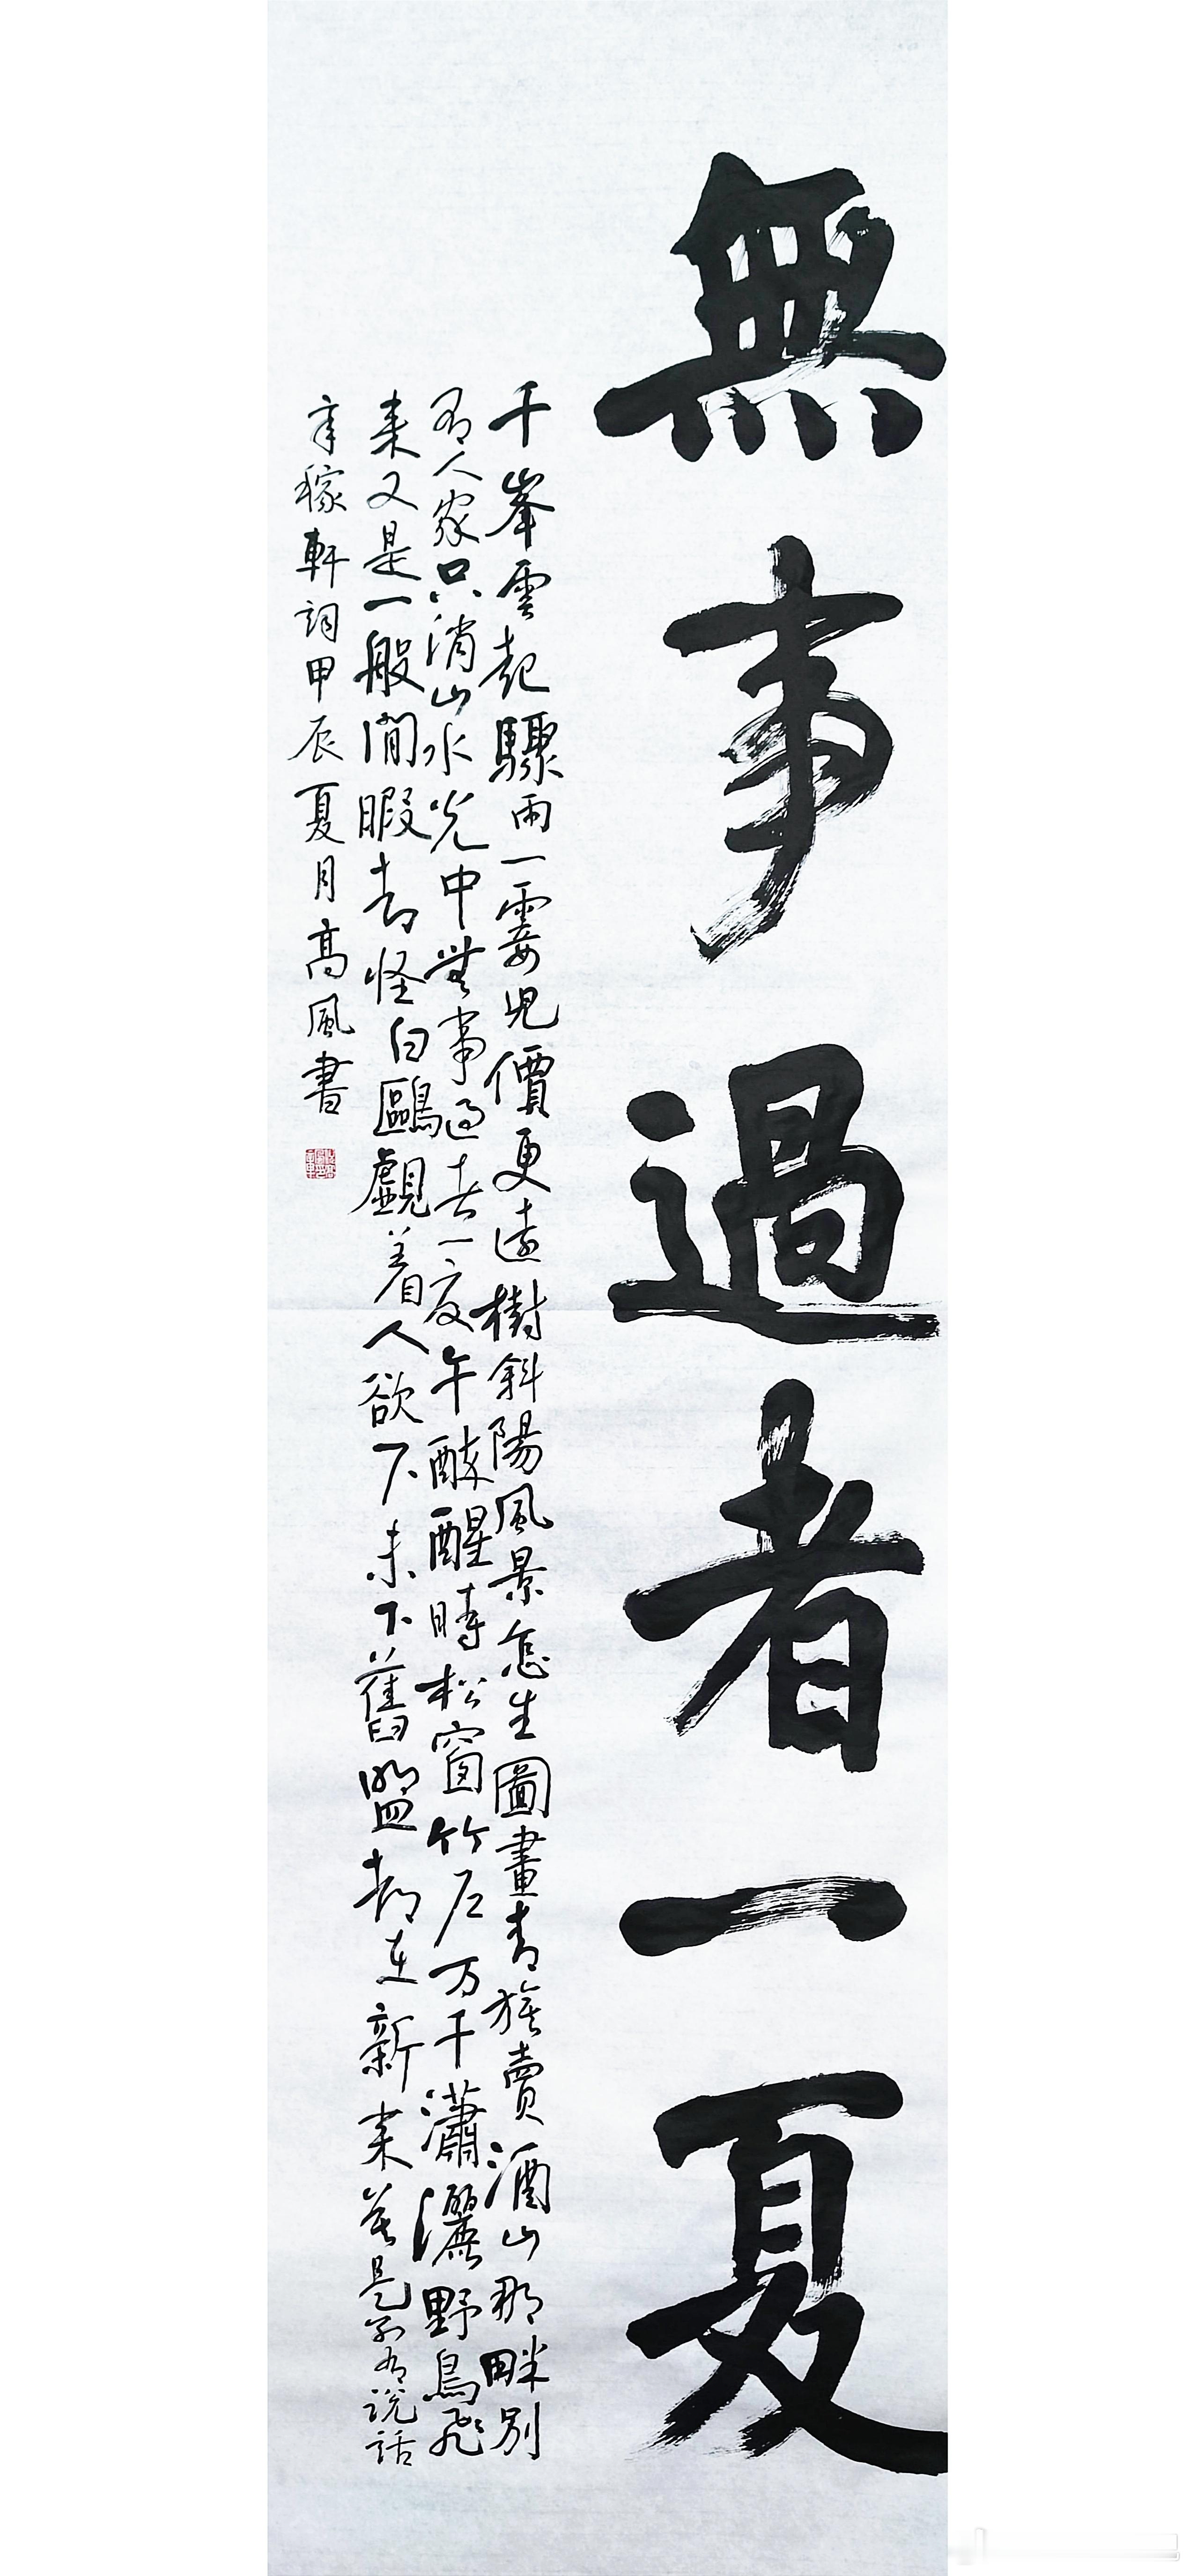 無事過者一夏
千峯雲起驟雨一霎兒價更遠樹斜陽風景怎生圖畫青旗賣酒山那畔別
有人家只消山水光中無事過者一夏午醉醒時松窗竹戶万千瀟灑野鳥飛
来又是一般閒暇却怪白鷗覷着人欲下未下舊盟都在新来莫是別有說話
辛稼軒詞甲辰夏月高風書